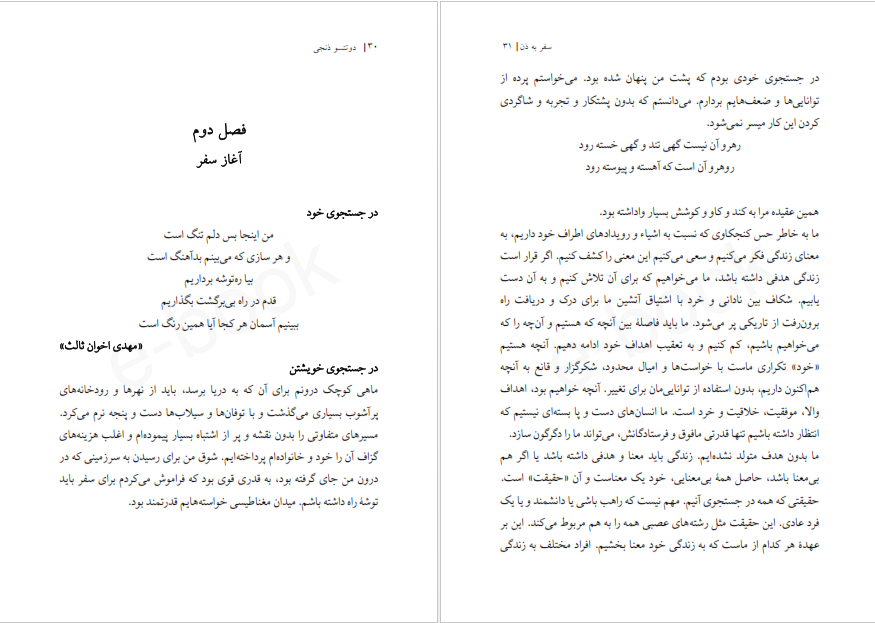 ۳۰ | دوتتسو ذنجی
فصل دوم
آغاز سفر
در جستجوی خود
من اینجا بس دلم تنگ است
و هر سازی که می‌بینم بدآهنگ است
بیا ره‌توشه برداریم
قدم در راه بی‌برگشت بگذاریم
ببینیم آسمان هر کجا آیا همین رنگ است
«مهدی اخوان ثالث»
در جستجوی خویشتن
ماهی کوچک درونم برای آن که به دریا برسد، باید از نهرها و رودخانه‌های
پرآشوب بسیاری می‌گذشت و با توفان‌ها و سیلاب‌ها دست و پنجه نرم می‌کرد.
مسیرهای متفاوتی را بدون نقشه و پر از اشتباه بسیار پیموده‌ام و اغلب هزینه‌های
گزاف آن را خود و خانواده‌ام پرداخته‌ایم. شوق من برای رسیدن به سرزمینی که در
درون من جای گرفته بود، به قدری قوی بود که فراموش می‌کردم برای سفر باید
توشهٔ راه داشته باشم. میدان مغناطیسی خواسته‌هایم قدرتمند بود.
سفر به ذن | ۳۱
در جستجوی خودی بودم که پشت من پنهان شده بود. می‌خواستم پرده از
توانایی‌ها و ضعف‌هایم بردارم. می‌دانستم که بدون پشتکار و تجربه و شاگردی
کردن این کار میسر نمی‌شود.
رهرو آن نیست گهی تند و گهی خسته رود
روهرو آن است که آهسته و پیوسته رود
همین عقیده مرا به کند و کاو و کوشش بسیار واداشته بود.
ما به خاطر حس کنجکاوی که نسبت به اشیاء و رویدادهای اطراف خود داریم، به
معنای زندگی فکر می‌کنیم و سعی می‌کنیم این معنی را کشف کنیم. اگر قرار است
زندگی هدفی داشته باشد، ما می‌خواهیم که برای آن تلاش کنیم و به آن دست
یابیم. شکاف بین نادانی و خرد با اشتیاق آتشین ما برای درک و دریافت راه
برون‌رفت از تاریکی پر می‌شود. ما باید فاصلهٔ بین آنچه که هستیم و آن‌چه را که
می‌خواهیم باشیم، کم کنیم و به تعقیب اهداف خود ادامه دهیم. آنچه هستیم
«خود» تکراری ماست با خواست‌ها و امیال محدود، شکرگزار و قانع به آنچه
هم‌اکنون داریم، بدون استفاده از توانایی‌مان برای تغییر. آنچه خواهیم بود، اهداف
والا، موفقیت، خلاقیت و خرد است. ما انسان‌های دست و پا بسته‌ای نیستیم که
انتظار داشته باشیم تنها قدرتی مافوق و فرستادگانش، می‌تواند ما را دگرگون سازد.
ما بدون هدف متولد نشده‌ایم. زندگی باید معنا و هدفی داشته باشد یا اگر هم
بی‌معنا باشد، حاصل همهٔ بی‌معنایی، خود یک معناست و آن «حقیقت» است.
حقیقتی که همه در جستجوی آنیم. مهم نیست که راهب باشی یا دانشمند و یا یک
فرد عادی. این حقیقت مثل رشته‌های عصبی همه را به هم مربوط می‌کند. این بر
عهدهٔ هر کدام از ماست که به زندگی خود معنا بخشیم. افراد مختلف به زندگی
e-book
e-book